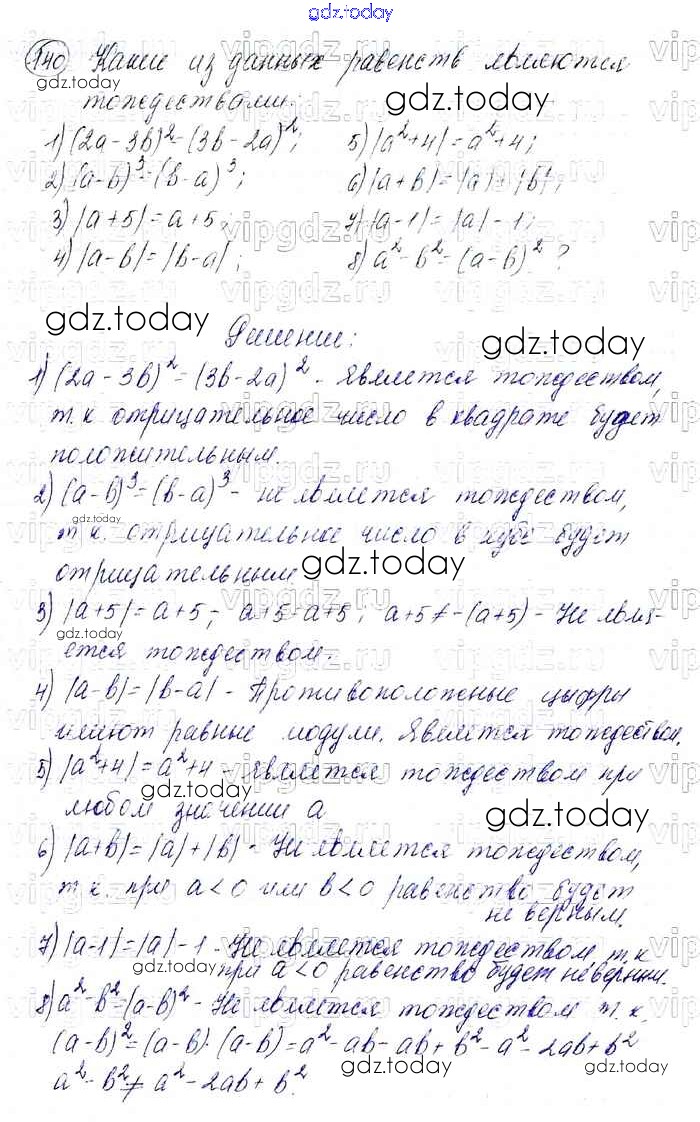 gdz.today
140 Какие из данных равенств являются
тождествами:
gdz.today
1) (2a - 3b)² = (3b - 2a)²;
5) |a² + 4| = a² + 4;
2) (a - b)³ = (b - a)³;
6) |a + b| = |a| + |b|;
3) |a + 5| = a + 5;
7) |a - 1| = |a| - 1;
4) |a - b| = |b - a|;
8) a² - b² = (a - b)² ?
gdz.today
Решение:
gdz.today
1) (2a - 3b)² = (3b - 2a)² - является тождеством,
т.к отрицательное число в квадрате будет
положительным.
2) (a - b)³ = (b - a)³ - не является тождеством,
gdz.today
т к. отрицательное число в кубе будет
отрицательным.
gdz.today
3) |a + 5| = a + 5; a + 5 = a + 5; a + 5 ≠ -(a + 5) - Не явля-
gdz.today
ется тождеством.
4) |a - b| = |b - a| - Противоположные цифры
имеют равные модули. Является тождеством.
5) |a² + 4| = a² + 4 - является тождеством при
gdz.today
любом значении a
gdz.today
6) |a + b| = |a| + |b| - Не является тождеством,
т к. при a < 0 или b < 0 равенство будет
не верным.
7) |a - 1| = |a| - 1 - Не является тождеством, т.к
gdz.today
при a < 0 равенство будет неверным.
8) a² - b² = (a - b)² - Не является тождеством т.к.
(a - b)² = (a - b) · (a - b) = a² - ab - ab + b² = a² - 2ab + b²
gdz.today
gdz.today
a² - b² ≠ a² - 2ab + b².
gdz.today
vipgdz.ru